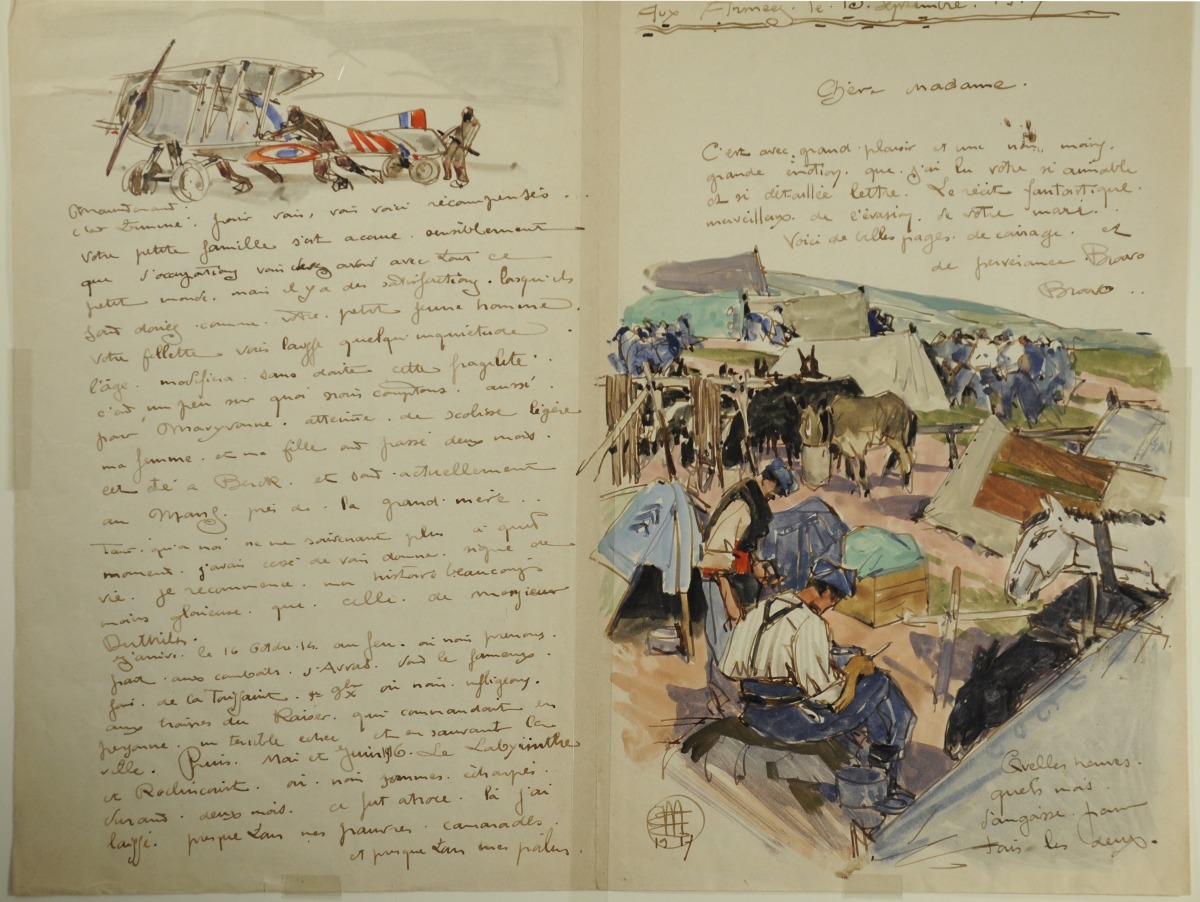 Aux Armées. le 15 Septembre. 1917
Chère Madame.
C'est avec grand plaisir et une non moins
grande émotion que j'ai lu votre si aimable
et si détaillée lettre. Le récit fantastique.
merveilleux de l'évasion de votre mari.
Voici de belles pages de courage et
de Bravo
Bravo ..
Quelles heures.
quels mois
d'angoisse pour
tous les deux.
1917
Maintenant
c'est terminé: pour vous, vous voici récompensés...
votre petite famille s'est accrue sensiblement
que d'occupations vous devez avoir avec tout ce
petit monde. mais il y a des satisfactions. lorsqu'ils
sont comme votre petit jeune homme.
votre fillette vous laisse quelqu'inquiétude
l'âge modifira sans doute cette fragilité..
c'est un peu sur quoi nous comptons aussi.
pour Maryvonne. atteinte de scoliose légère
ma femme et ma fille ont passé deux mois.
cet été à Berck. et sont actuellement
au Mans près de la grand-mère..
Tant qu'à moi ne me souvenant plus à quel
moment j'avais cessé de vous donner signe de
vie. je recommence mon histoire beaucoup
moins glorieuse que celle de Monsieur
Duthilis.
J'arrive le 16 Octbre. 14. au feu. où nous prenons
part aux combats d'Arras. Vint le fameux
jour de la Toussaint. 1er 9bre où nous infligeons
aux troupes du Kaiser qui commandait en
personne un terrible échec. et en sauvant la
ville. Puis. Mai et Juin Le Labyrinthe
et Roclincourt. où nous sommes écharpés.
durant deux mois. ce fut atroce. là j'ai
laissé presque tous mes pauvres camarades
et presque tous mes poilus.